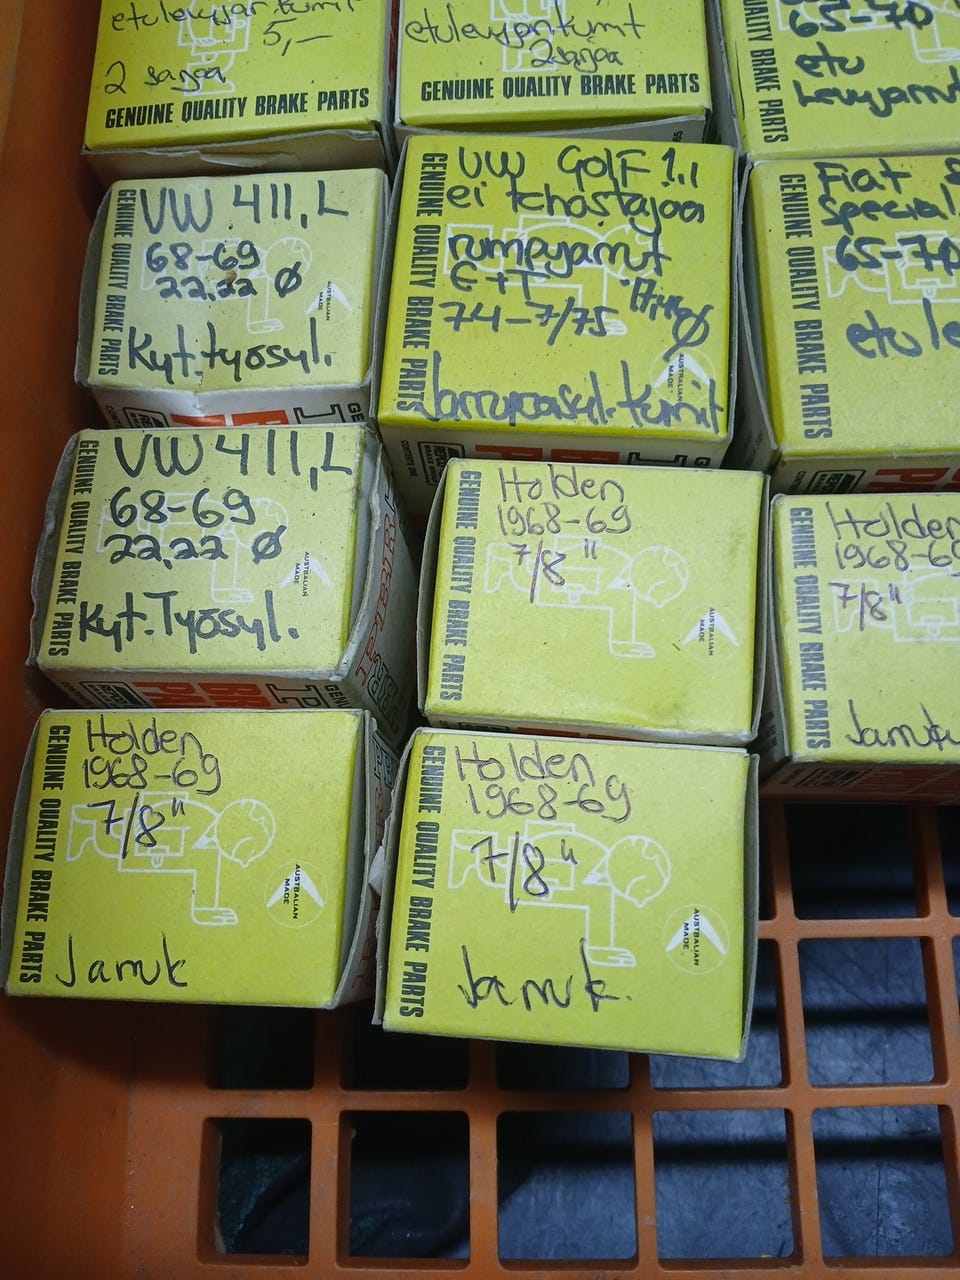 etulevyjar.tumit
5,—
2 sarjaa
GENUINE QUALITY BRAKE PARTS
etulevyjartumit
2 sarjaa
GENUINE QUALITY BRAKE PARTS
65-70
etu
Levyjarrut
QUALITY BRAKE PARTS
VW 411,L
68-69
22.22 Ø
Kyt.työsyl.
GENUINE QUALITY BRAKE PARTS
AUSTRALIAN
MADE
VW GOLF 1,1
ei tehostajaa
rumpujarrut
E+T
74-7/75
Jarrupääsyl.tumit
GENUINE QUALITY BRAKE PARTS
AUSTRALIAN
MADE
Fiat
Special
65-70
GENUINE QUALITY BRAKE PARTS
VW 411,L
68-69
22.22 Ø
Kyt.Työsyl.
GENUINE QUALITY BRAKE PARTS
AUSTRALIAN
MADE
Holden
1968-69
7/8"
GENUINE QUALITY BRAKE PARTS
AUSTRALIAN
MADE
Holden
1968-69
7/8"
GENUINE QUALITY BRAKE PARTS
Holden
1968-69
7/8"
Jarruk
GENUINE QUALITY BRAKE PARTS
AUSTRALIAN
MADE
Holden
1968-69
7/8"
Jarruk.
GENUINE QUALITY BRAKE PARTS
AUSTRALIAN
MADE